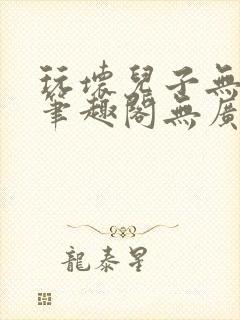 玩壞兒子無
筆趣閣無廣
龍泰星